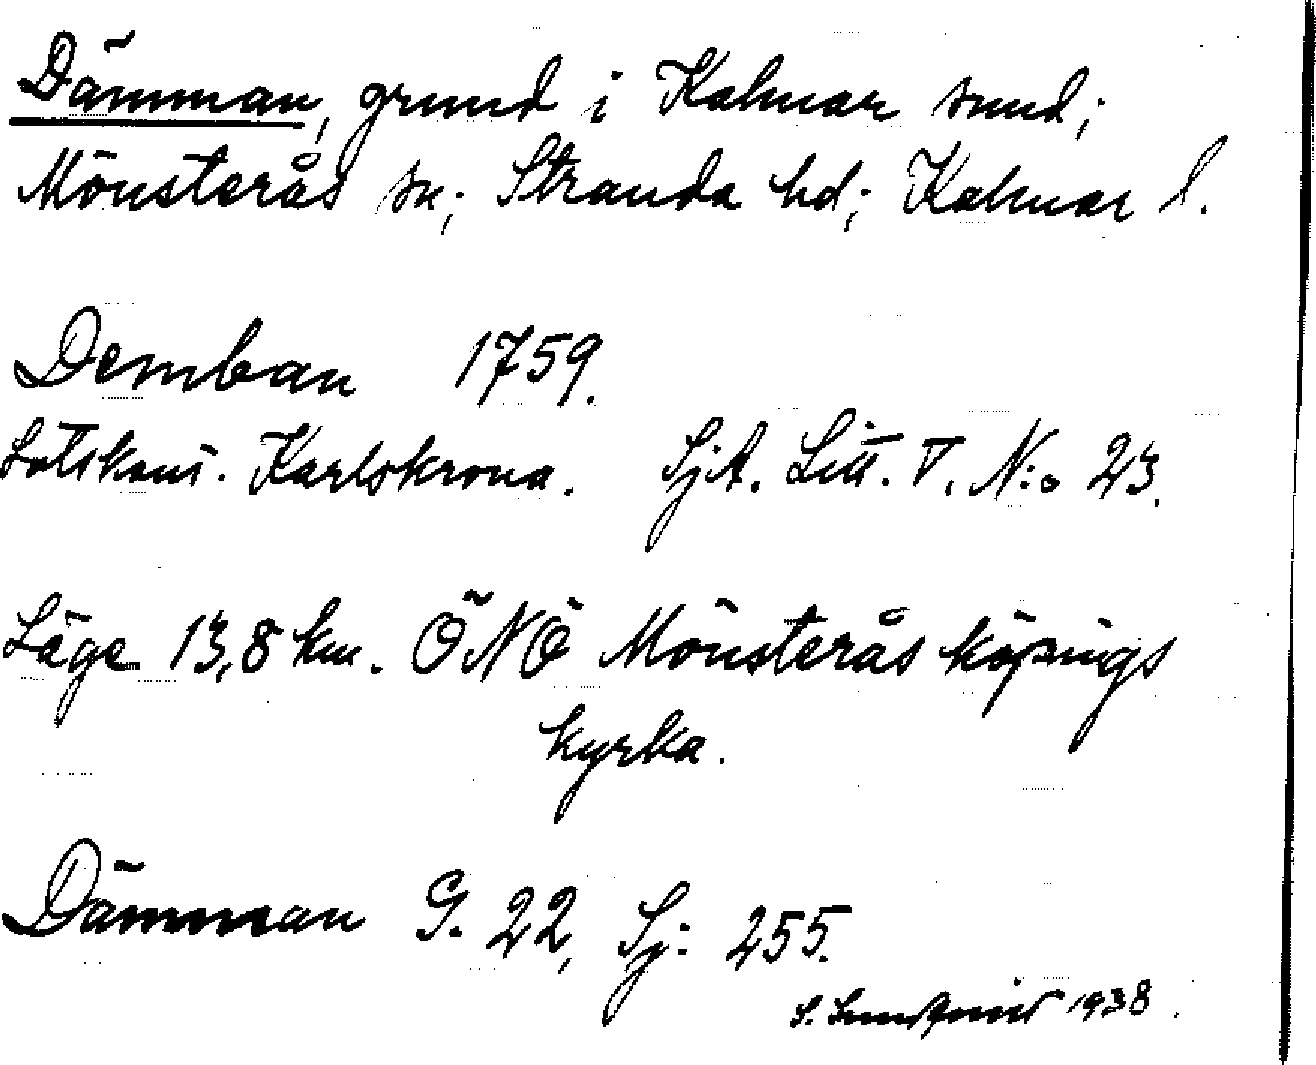 Dämman, grund i Kalmar sund;
Mönsterås sn; Stranda hd; Kalmar l.
Demban 1759.
Lotskont. Karlskrona. SjA. Litt. V. N:o 23.
Läge 13,8 km. ÖNÖ Mönsterås köpings
kyrka.
Dämman G. 22, Sj: 255.
S. Sundqvist 1938.